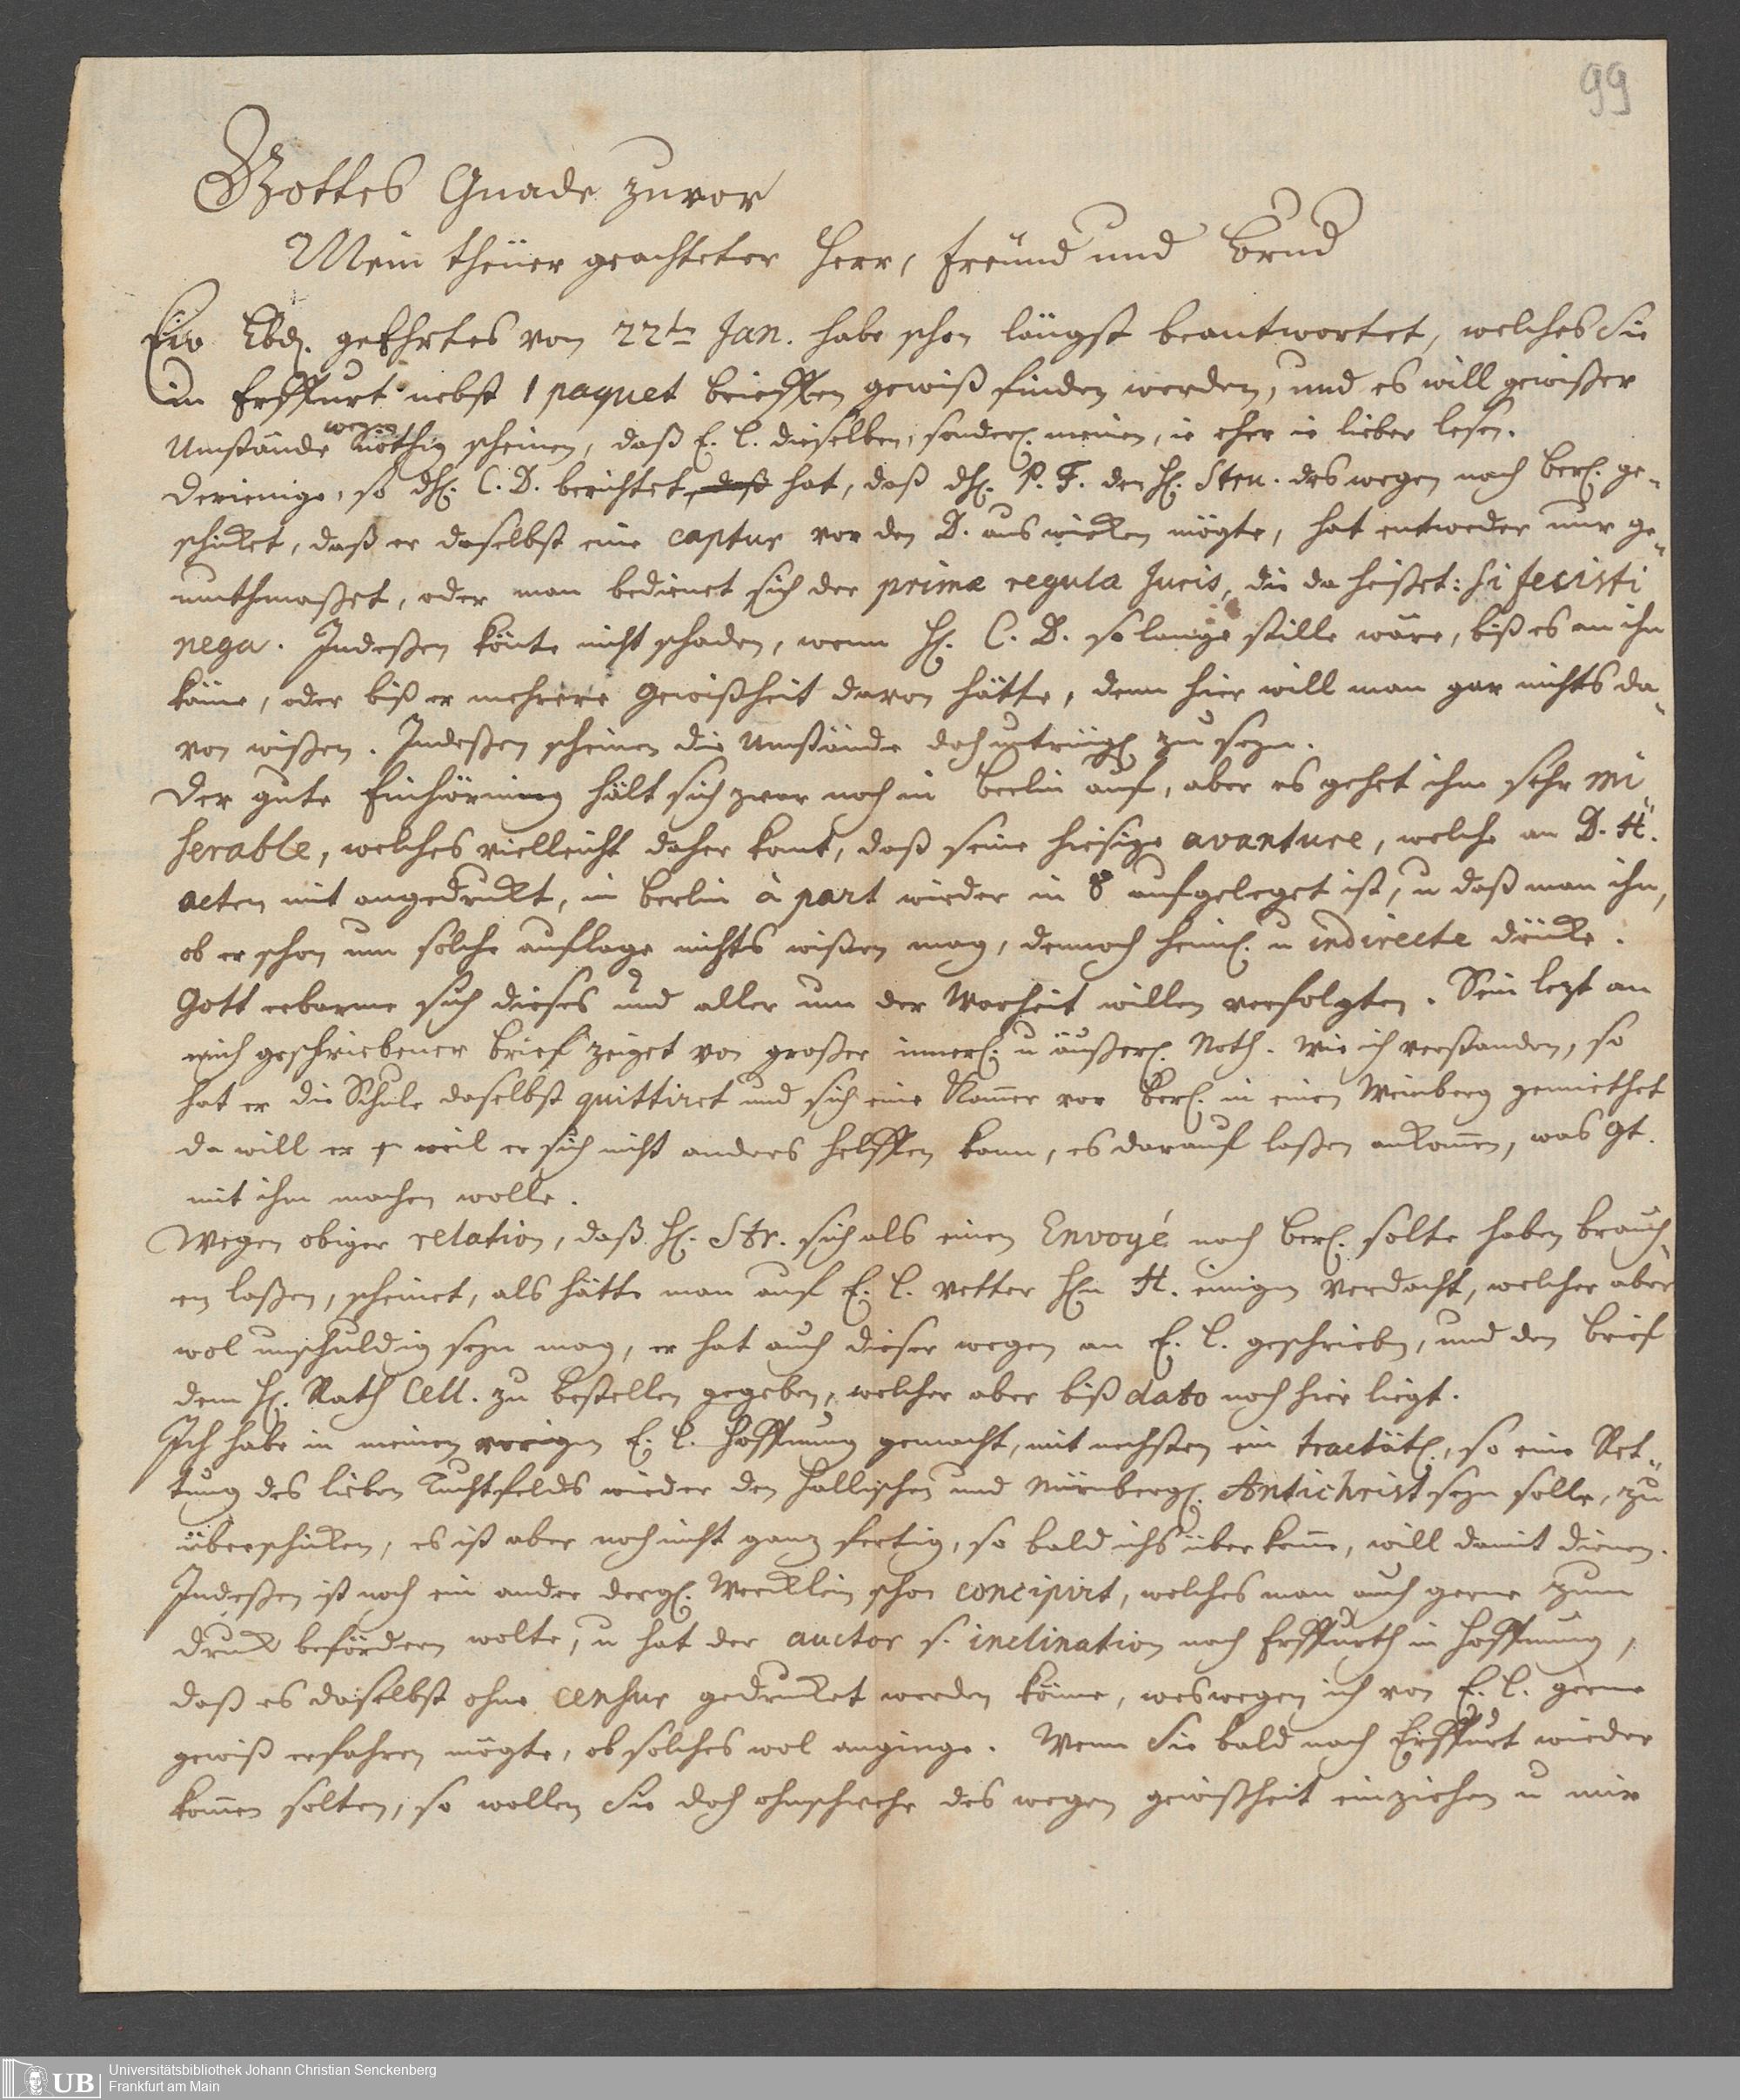 99
Gottes Gnade zuvor
Mein theüer geachteter Herr, Freünd und Brud
Ew Lbd. geEhrtes von 22ten Jan. habe schon längst beantwortet, welches Sie
in Erffurt nebst 1 paquet brieffen gewiß finden werden, und es will gewißer
wegen
Umstände nöthig scheinen, daß E. L. dieselben, sonderl. meinen, ie eher ie lieber lesen.
Derienige, so dH. C. D. berichtet, daß hat, daß dH. P. F. den H. Stru. deswegen nach Berl. ge-
schickt, daß er daselbst eine captur vor den D. auswirken mögte, hat entweder nur ge-
muthmaßet, oder man bedienet sich der primæ regula Juris, die da heißet: si fecisti
nega. Indeßen könte nicht schaden, wenn H. C. D. so lange stille wäre, biß es an ihn
käme, oder biß er mehrere Gewißheit davon hätte, denn hier will man gar nichts da-
von wißen. Indeßen scheinen die Umstände doch zu seyn.
Der gute hält sich zwar noch in Berlin auf, aber es gehet ihm sehr mi-
serable, welches vielleicht daher komt, daß seine hiesige avanture, welche an D. H.
acten mit angedruckt, in Berlin à part wieder in 8 aufgeleget ist, u daß man ihn,
ob er schon um solche auflage nichts wißen mag, dennoch heiml. u indirecte drücke.
Gott erbarme sich dieses und aller um der Warheit willen verfolgten. Sein lezt an
mich geschriebener Brief zeiget von großer innerl. u äußerl. Noth. Wie ich verstanden, so
hat er die Schule daselbst quittiret und sich eine Kamer vor Berl. in einen Weinberg gemiethet
da will er weil er sich nicht anders helffen kann, es darauf laßen ankomen, was Gt.
mit ihm machen wolle.
Wegen obiger relation, daß H. Str. sich als einen Envoyé nach Berl. solte haben brauch
en laßen, scheinet, als hätte man auf E. L. Vetter Hn H. einigen Verdacht, welcher aber
wol unschuldig seyn mag, er hat auch dieser wegen an E. L. geschrieben, und den Brief
dem H. Rath Cell. zu bestellen gegeben, welcher aber biß dato noch hier liegt.
Ich habe in meinen vorigen E. L. Hoffnung gemacht, mit nechsten ein tractätl., so eine Ret-
tung des lieben Tuchtfelds wieder den Hallischen und Nürnbergl. Antichrist seyn solle, zu
überschicken, es ist aber noch nicht ganz fertig, so bald ichs überkome, will damit dienen.
Indeßen ist noch ein ander dergl. Wercklein schon concipirt, welches man auch gerne zum
druck befördern wolte, u hat der auctor s. inclination nach Erffurth in Hoffnung,
daß es daselbst ohne censur gedrucket werden könne, weswegen ich von E. L. gerne
gewiß erfahren mögte, ob solches wol anginge. Wenn Sie bald nach Erffurt wieder
komen solten, so wollen Sie doch ohnschwehr des wegen gewißheit einziehen u mir
UB Universitätsbibliothek Johann Christian Senckenberg
Frankfurt am Main